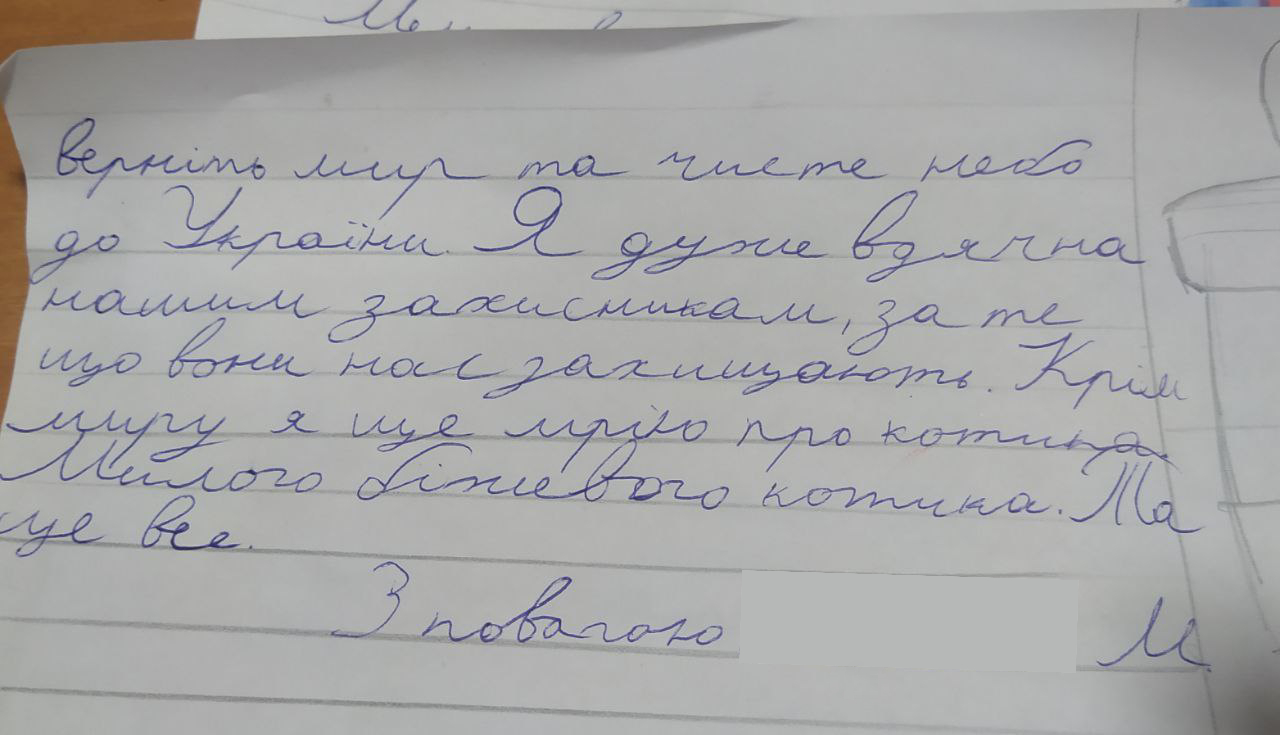 верніть мир та чисте небо
до України. Я дуже вдячна
нашим захисникам, за те
що вони нас захищають. Крім
миру я ще мрію про котика.
Милого біжевого котика. Та
це все.
З повагою М.